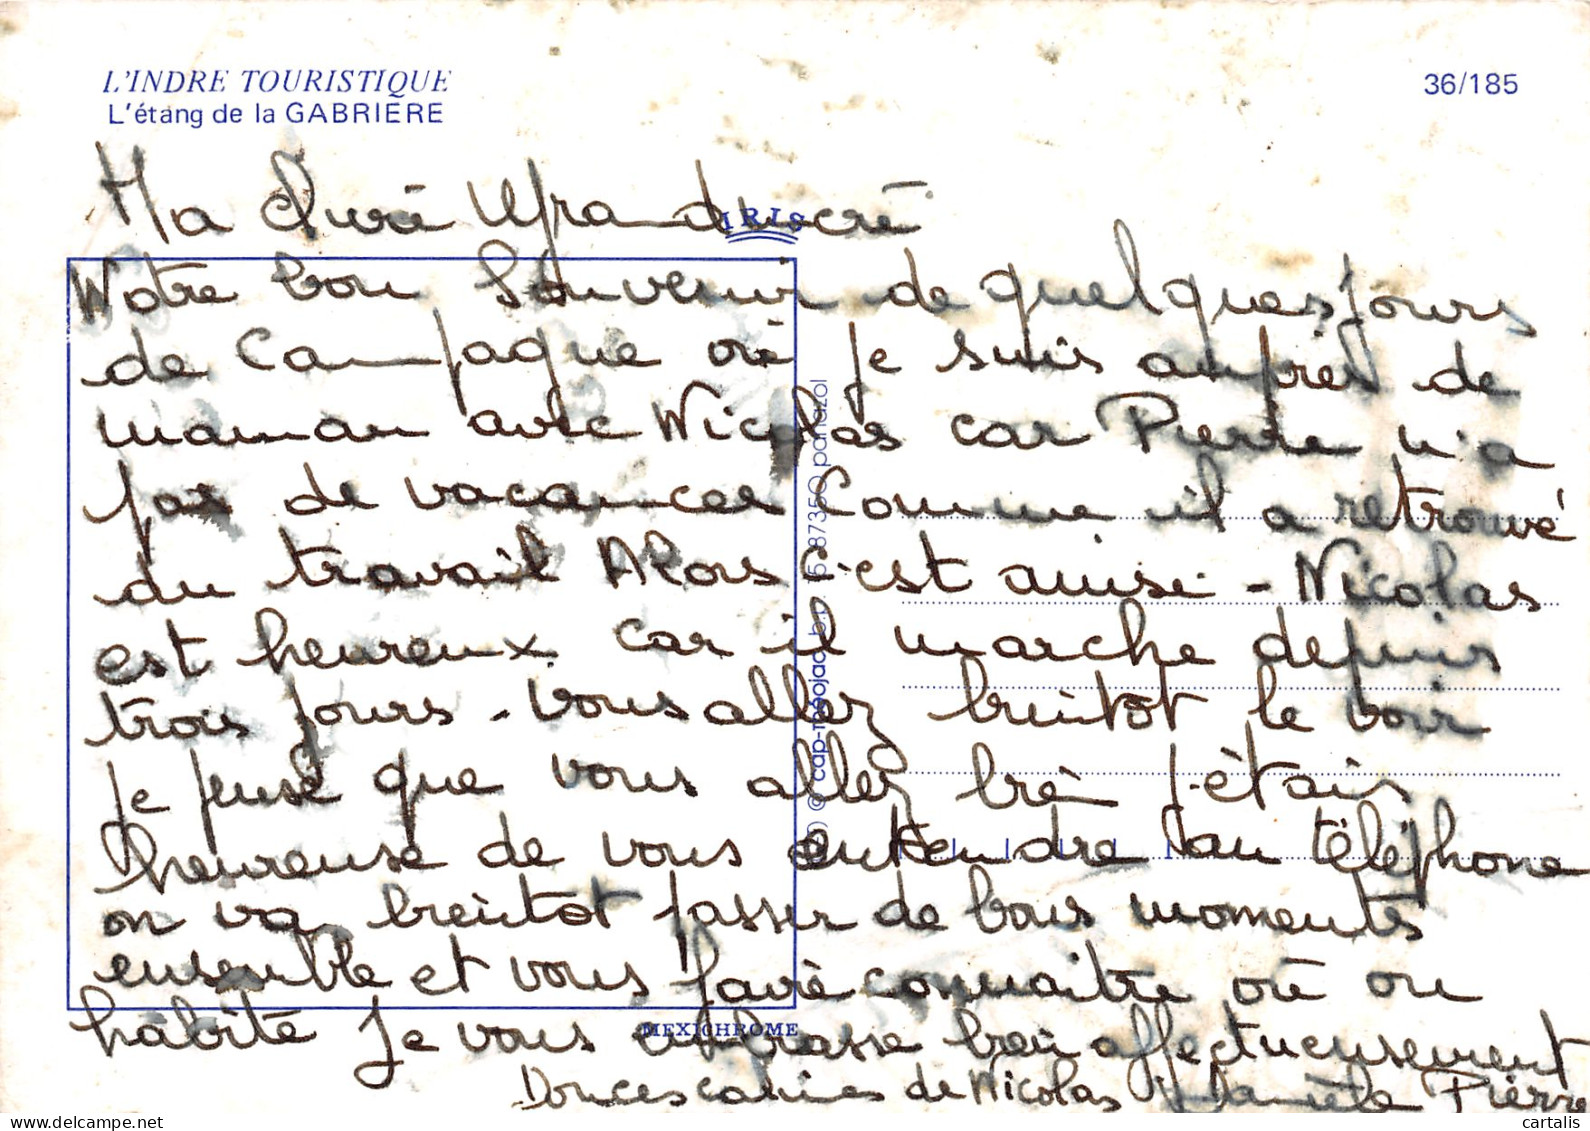 L'INDRE TOURISTIQUE
36/185
L'étang de la GABRIERE
IRIS
Ma
Notre bon Souvenir de quelques jours
de Campagne où je suis auprès de
maman avec Nicolas car Pierre n'a
pas de vacances Comme il a retrouvé
du travail Alors c'est ainsi - Nicolas
est heureux car il marche depuis
trois jours - vous allez bientôt le voir
Je pense que vous allez bien j'étais
heureuse de vous entendre au téléphone
on va bientot passer de bons moments
ensemble et vous faire connaitre où on
habite Je vous embrasse bien affectueusement
Douces calines de Nicolas Pierre
MEXICHROME
cap-théojac b.p. 5 87350 panazol
cartalis
delcampe.net